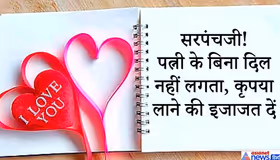 I LOVE
YOU
सरपंचजी!
पत्नी के बिना दिल
नहीं लगता, कृपया
लाने की इजाजत दें
news